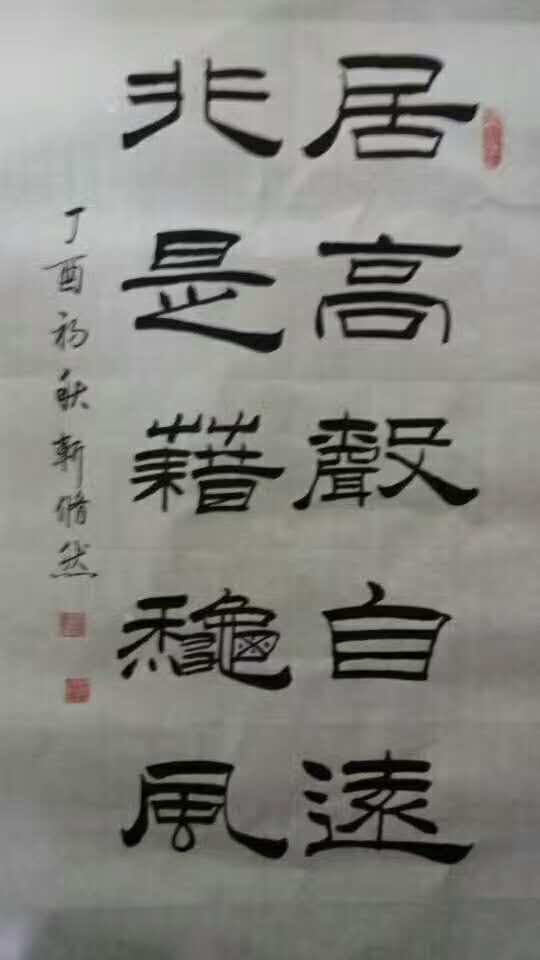 居高聲自遠
非是藉龝風
丁酉初秋靳脩然